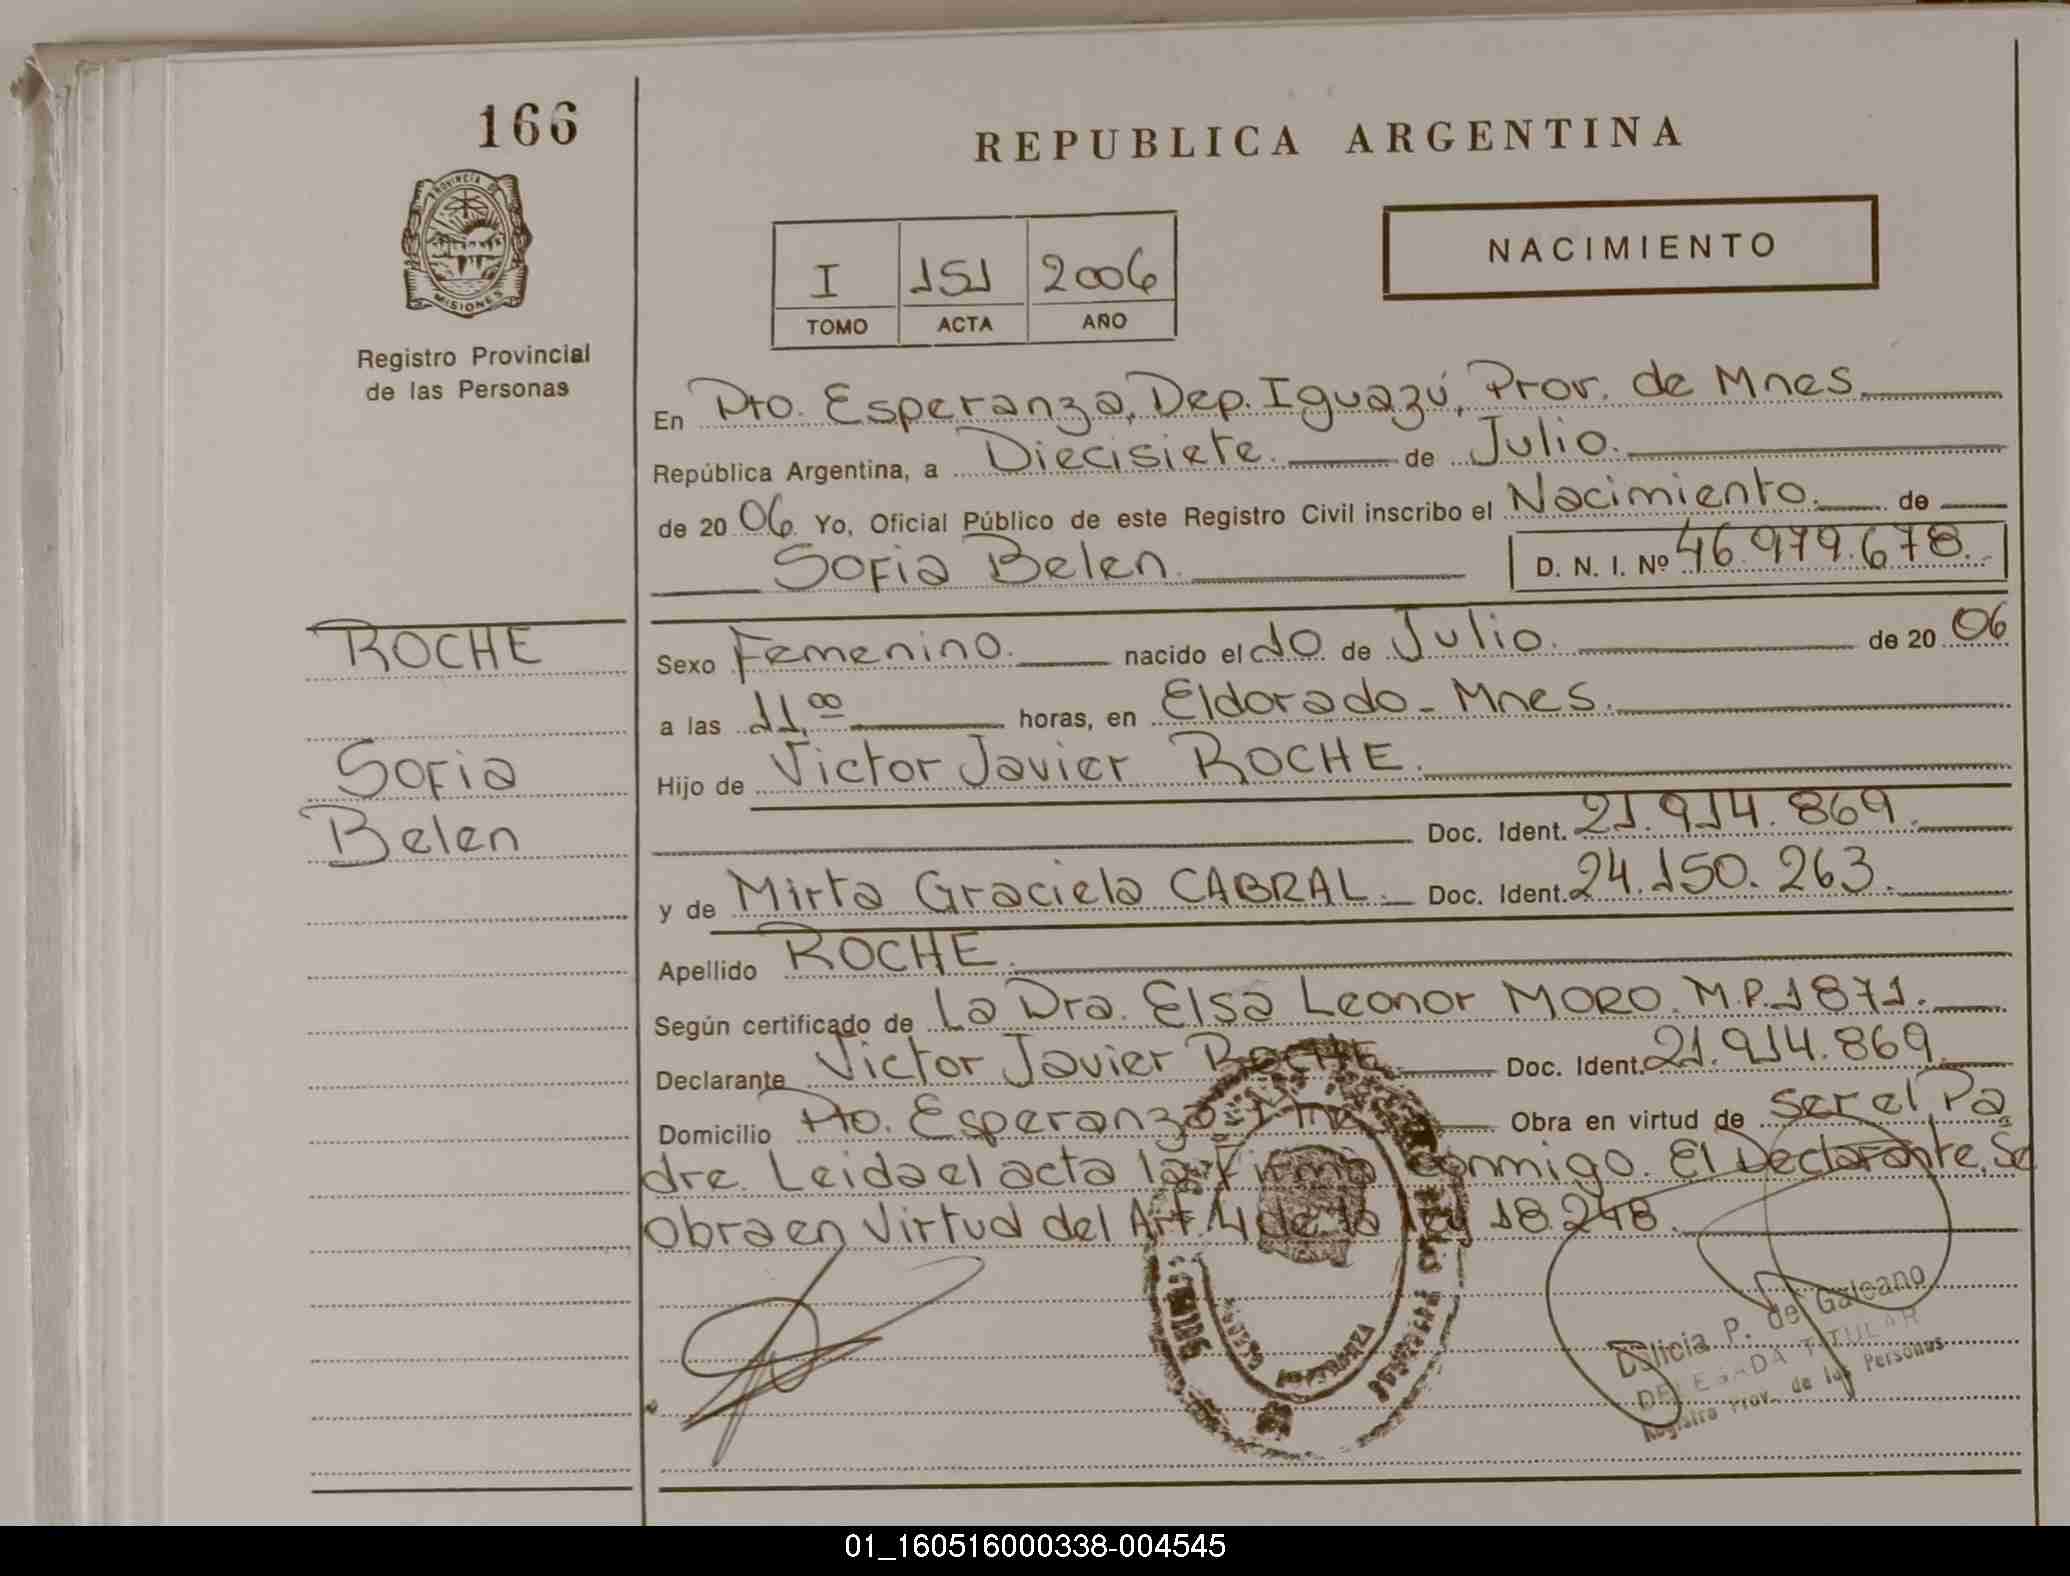 166
REPUBLICA ARGENTINA
PROVINCIA DE
MISIONES
Registro Provincial
de las Personas
I 151 2006
TOMO ACTA AÑO
NACIMIENTO
En Pto. Esperanza, Dep. Iguazú, Prov. de Mnes.
República Argentina, a Diecisiete. de Julio.
de 20 06. Yo, Oficial Público de este Registro Civil inscribo el Nacimiento. de
Sofia Belen. D. N. I. Nº 46.979.678.
ROCHE
Sofia
Belen
Sexo Femenino. nacido el 10 de Julio. de 20 06
a las 11,00 horas, en Eldorado - Mnes.
Hijo de Victor Javier ROCHE.
Doc. Ident. 21.914.869.
y de Mirta Graciela CABRAL. Doc. Ident. 24.150.263.
Apellido ROCHE.
Según certificado de La Dra. Elsa Leonor MORO. M.P. 1871.
Declarante Victor Javier ROCHE Doc. Ident. 21.914.869.
Domicilio Pto. Esperanza Obra en virtud de ser el Pa
dre. Leida el acta la Firma conmigo. El Declarante. Se
obra en virtud del Art. 4 de la ley 18.248.
Delicia P. de Galeano
DELEGADA TITULAR
Registro Prov. de las Personas
01_160516000338-004545